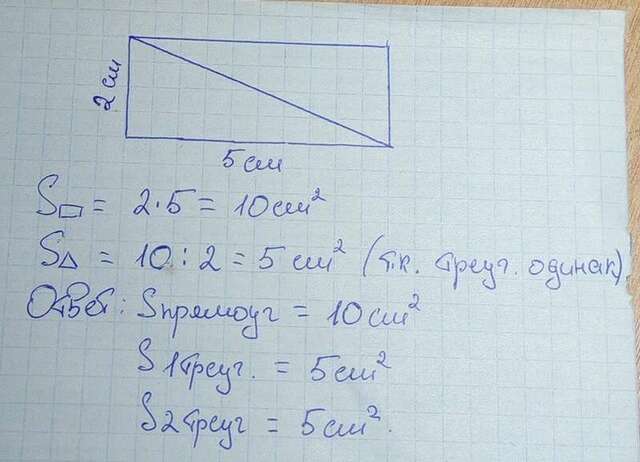 2 см
5 см
S▭ = 2·5 = 10 см²
S△ = 10 : 2 = 5 см² (т.к. треуг. одинак).
Ответ: Sпрямоуг = 10 см²
S1треуг. = 5 см²
S2треуг = 5 см².